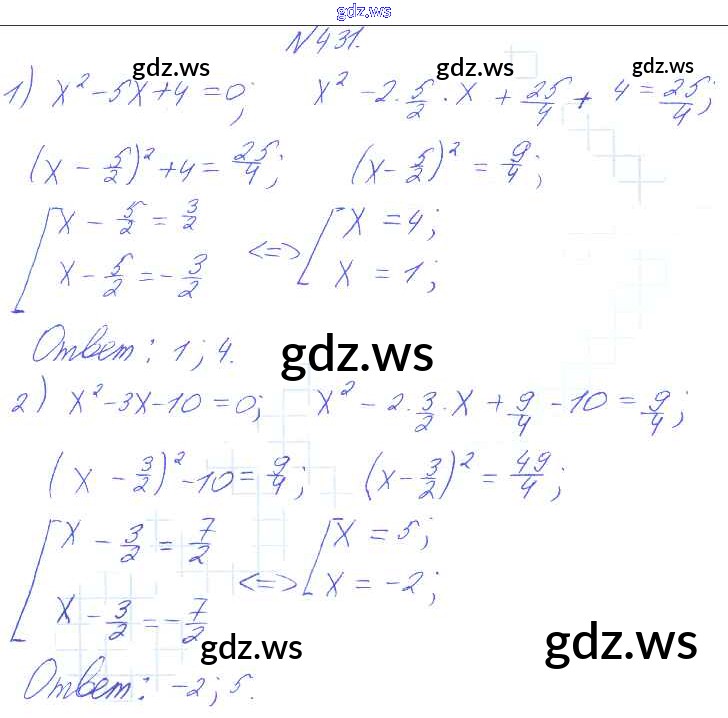 gdz.ws
N431.
gdz.ws gdz.ws gdz.ws
1) x² - 5x + 4 = 0; x² - 2·5/2·x + 25/4 + 4 = 25/4;
(x - 5/2)² + 4 = 25/4; (x - 5/2)² = 9/4;
[ x - 5/2 = 3/2
x - 5/2 = -3/2 <=> [ x = 4;
x = 1;
Ответ: 1; 4.
gdz.ws
2) x² - 3x - 10 = 0; x² - 2·3/2·x + 9/4 - 10 = 9/4;
(x - 3/2)² - 10 = 9/4; (x - 3/2)² = 49/4;
[ x - 3/2 = 7/2
x - 3/2 = -7/2 <=> [ x = 5;
x = -2;
gdz.ws gdz.ws
Ответ: -2; 5.